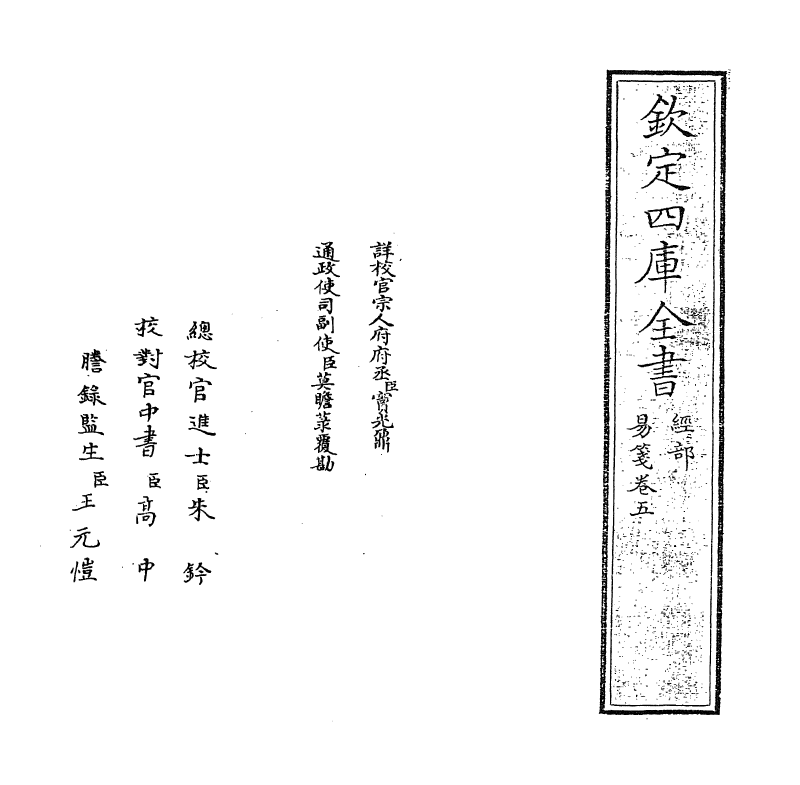 欽定四庫全書
經部
易箋卷五
詳校官宗人府府丞臣竇光鼐
通政使司副使臣莫瞻菉覆勘
總校官進士臣朱鈐
校對官中書臣高中
謄錄監生臣王元愷